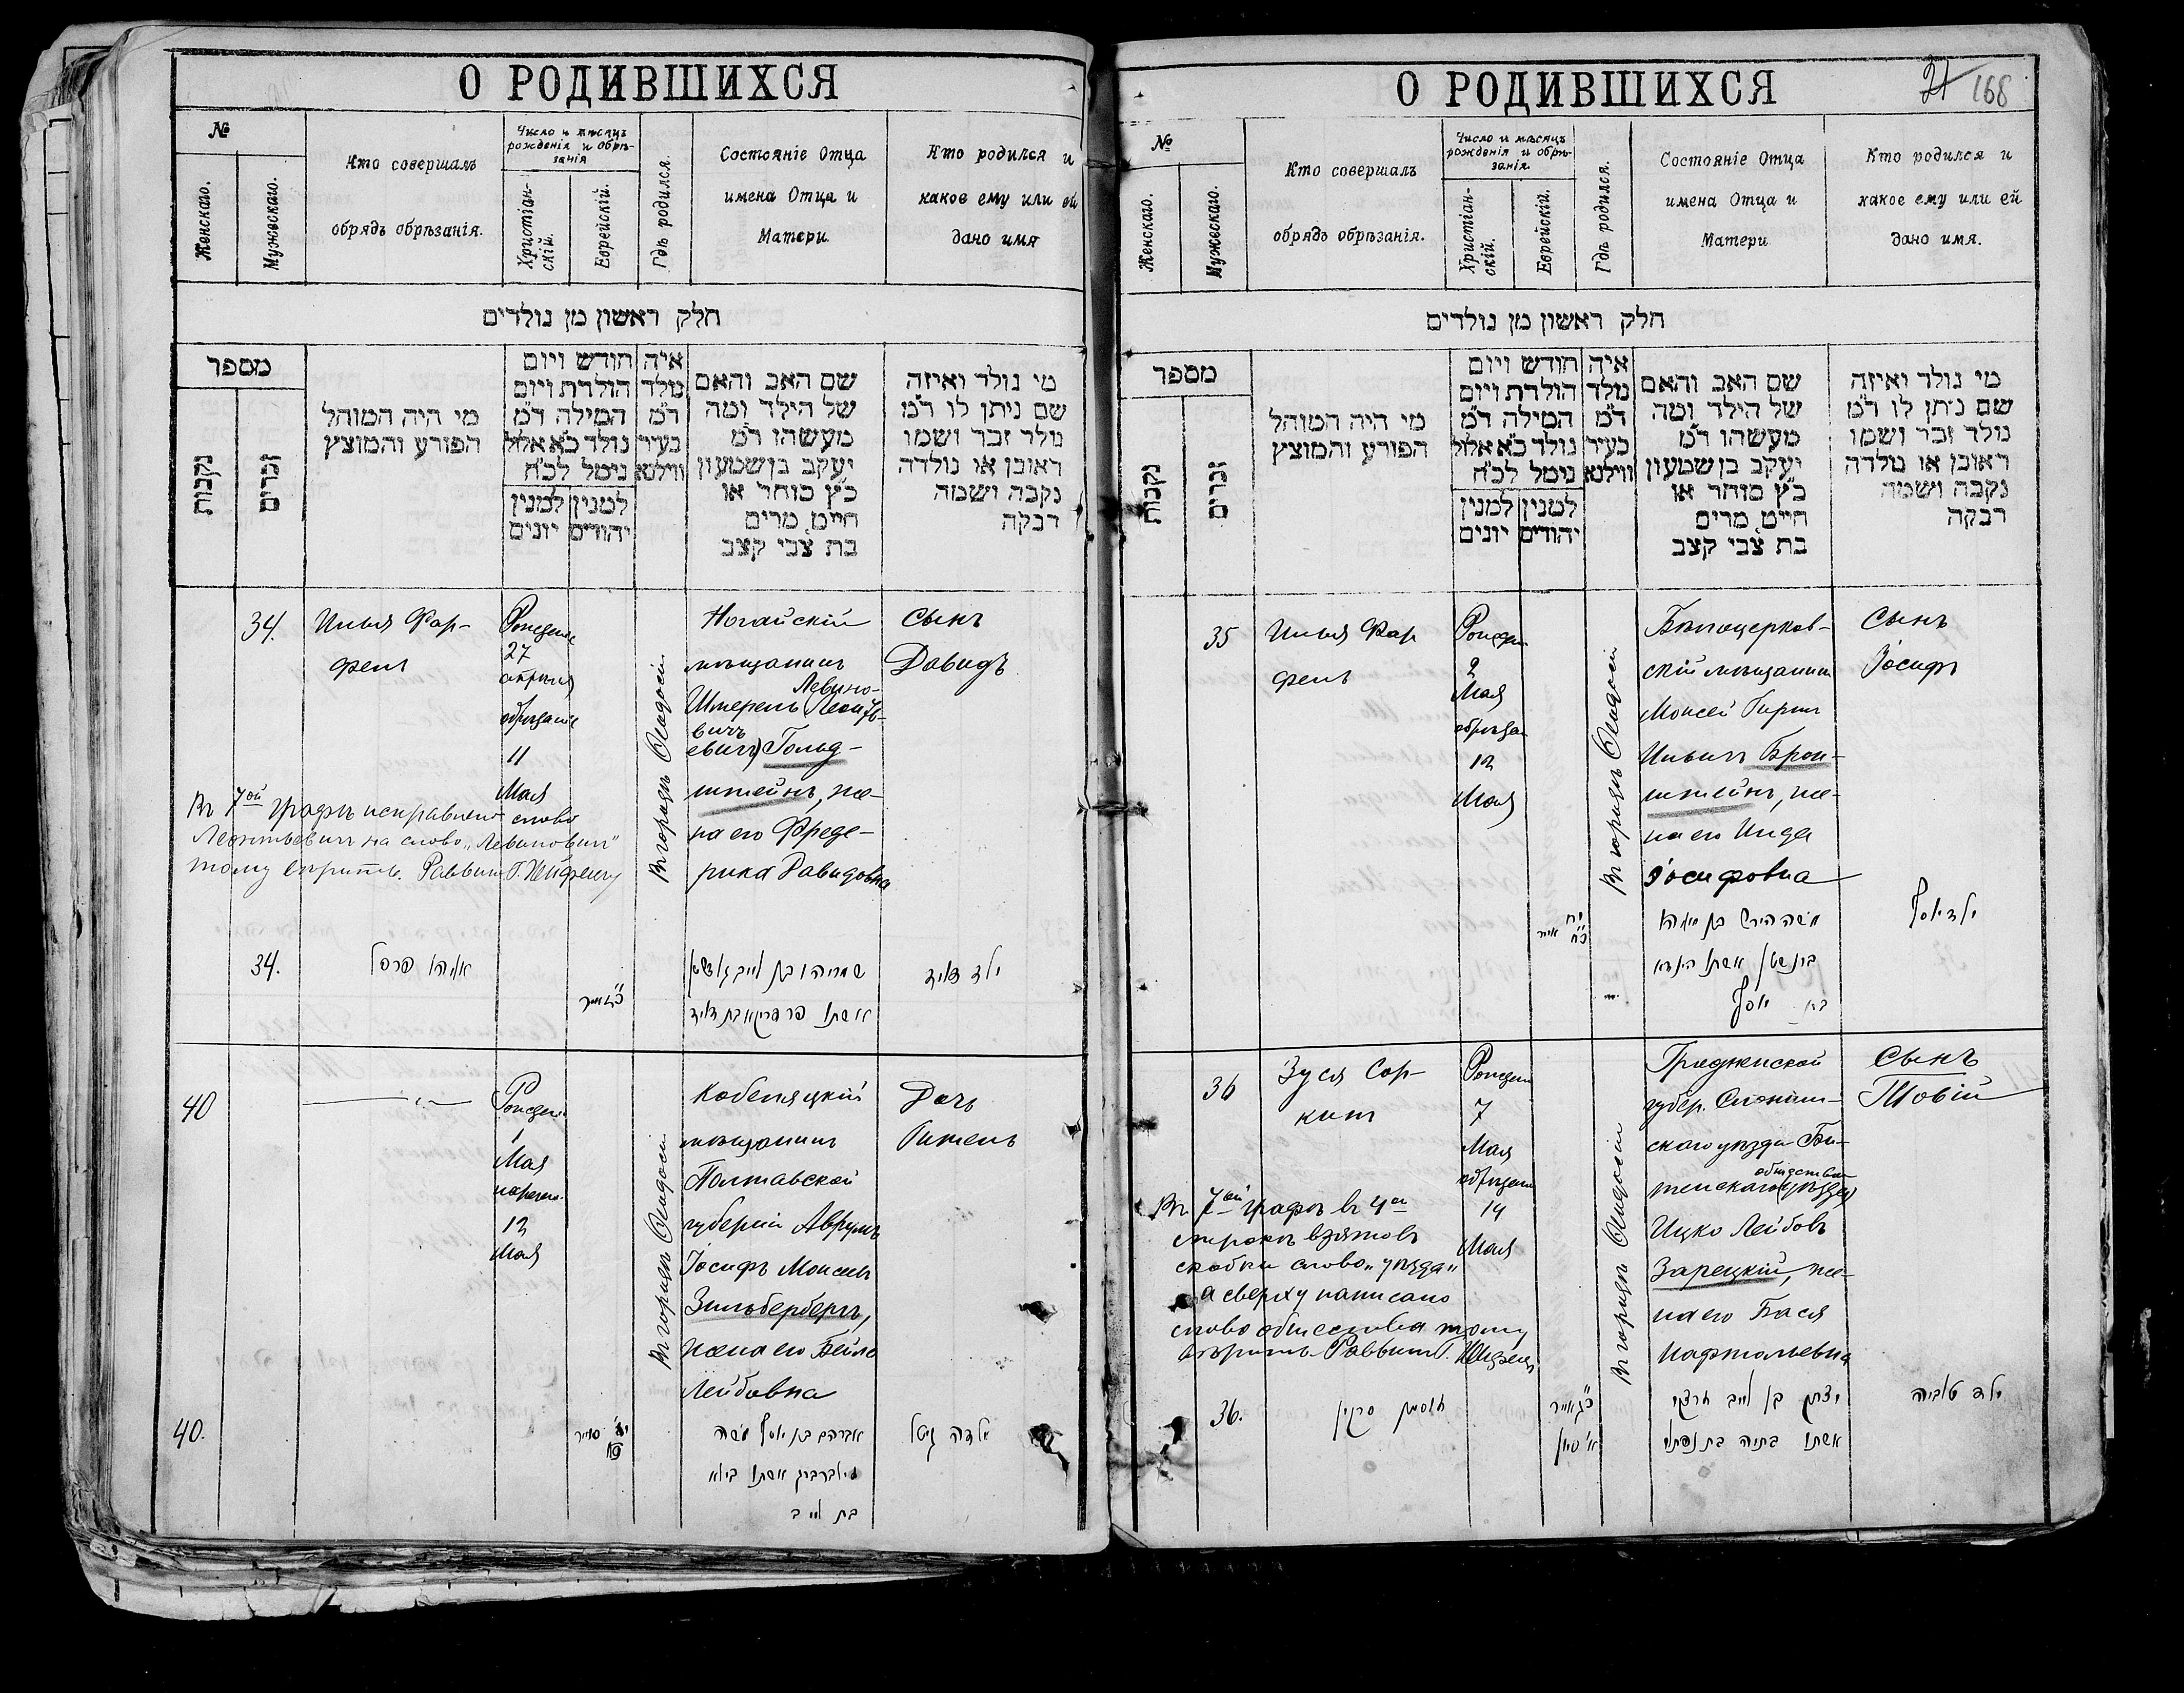 О РОДИВШИХСЯ
№
Женскаго.
Мужескаго.
Кто совершалъ
обрядъ обрѣзанія.
Число и мѣсяцъ
рожденія и обрѣ-
занія
Христіан-
скій.
Еврейскій.
Гдѣ родился.
Состояніе Отца
имена Отца и
Матери.
Кто родился и
какое ему или ей
дано имя
חלק ראשון מן נולדים
מספר
נקבות
זכרים
מי היה המוהל
הפורע והמוצץ
חודש ויום
הולדת ויום
המילה ד״מ
נולד כ״א אלול
נימל לכ״ח
למנין למנין
יהודים יונים
איה
נולד
ד״מ
בעיר
ווילנא
שם האב והאם
של הילד ומה
מעשהו ד״מ
יעקב בן שמעון
כ״ץ סוחר או
חייט מרים
בת צבי קצב
מי נולד ואיזה
שם ניתן לו ד״מ
נולד זכר ושמו
ראובן או נולדה
נקבה ושמה
רבקה
34.
Илья Фар-
фель
Рожденіе
27
апрѣля
обрѣзаніе
11
Мая
Въ городѣ Ѳеодосіи
Ногайскій
мѣщанинъ
Левино-
Шмерель (Леонть-
вичъ
евичъ) Гольд-
штейнъ, же-
на его Фреде-
рика Давидовна
Сынъ
Давидъ
Въ 7ой графѣ исправлено слово
Леонтьевичъ на слово „Левинович"
тому вѣрить. Раввинъ Г.
34.
אליהו פרפל
אייר
אשתו פרידריקא בת דוד
ילד דוד
40
Рожден
1
Мая
нареч.
12
Мая
Въ городѣ Ѳеодосіи
Кобеляцкій
мѣщанинъ
Полтавской
губерніи Аврумъ
Іосифъ Моисеев
Зильбербергъ,
жена его Бейла
Лейбовна
Дочь
Гитель
40.
אברהם בן יוסף משה
זילברברג אשתו ביילא
בת לייב
ילדה גיטל
О РОДИВШИХСЯ
21 168
№
Женскаго.
Мужескаго.
Кто совершалъ
обрядъ обрѣзанія.
Число и мѣсяцъ
рожденія и обрѣ-
занія.
Христіан-
скій.
Еврейскій.
Гдѣ родился.
Состояніе Отца
имена Отца и
Матери
Кто родился и
какое ему или ей
дано имя.
חלק ראשון מן נולדים
מספר
נקבות
זכרים
מי היה המוהל
הפורע והמוצץ
חודש ויום
הולדת ויום
המילה ד״מ
נולד כ״א אלול
נימל לכ״ח
למנין למנין
יהודים יונים
איה
נולד
ד״מ
בעיר
ווילנא
שם האב והאם
של הילד ומה
מעשהו ד״מ
יעקב בן שמעון
כ״ץ סוחר או
חייט מרים
בת צבי קצב
מי נולד ואיזה
שם ניתן לו ד״מ
נולד זכר ושמו
ראובן או נולדה
נקבה ושמה
רבקה
35
Илья Фар
фель
Рожден
2
Мая
обрѣзан
12
Мая
Въ городѣ Ѳеодосіи
Бѣлоцерков-
скій мѣщанинъ
Моисей Гирш
Ильичъ Брон-
штейнъ, же-
на его Инда
Іосифовна
Сынъ
Іосифъ
אייר
משה הירש בן אליהו
אשתו הינדא
בת יוסף
ילד יוסף
36
Зуся Сор-
кинъ
Рожден
7
Мая
обрѣзан
14
Мая
Въ городѣ Ѳеодосіи
Гродненской
губер. Слоним-
скаго уѣзда Бы-
общества
тенскаго (уѣзда)
Ицко Лейбовъ
Зарецкій, же-
на его Бася
Нафтольевна
Сынъ
Товій
Въ 7ой графѣ въ 4ой
строкѣ взято въ
скобки слово „уѣзда"
а сверху написано
слово общества тому
вѣрить. Раввинъ Г.
36.
סרקין
אייר
א׳ סיון
יצחק בן לייב זרצקי
אשתו בתיה בת נפתלי
ילד טוביה